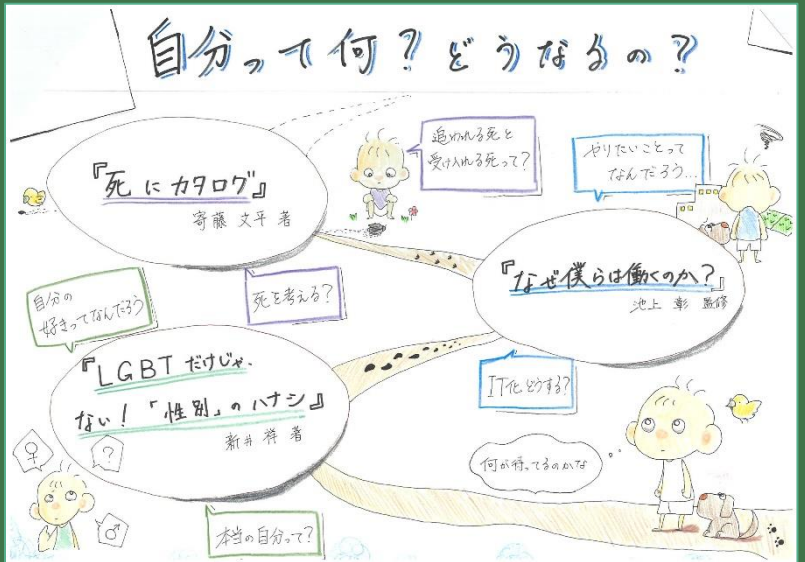 自分って何?どうなるの?
『死にカタログ』
寄藤 文平 著
追われる死と
受け入れる死って?
やりたいことって
なんだろう…
死を考える?
『なぜ僕らは働くのか?』
池上 彰 監修
自分の
好きってなんだろう
『LGBTだけじゃ
ない!「性別」のハナシ』
新井 祥 著
IT化どうする?
何が待ってるのかな
♀
?
♂
本当の自分って?